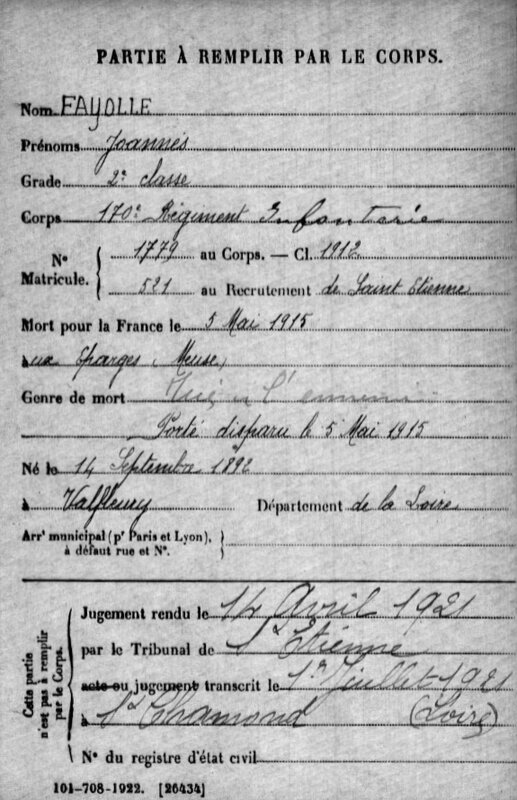 PARTIE À REMPLIR PAR LE CORPS.
Nom FAYOLLE
Prénoms Joannès
Grade 2e classe
Corps 170e Régiment Infanterie
N° Matricule. { 1779 au Corps. — Cl. 1912
521 au Recrutement de Saint Etienne
Mort pour la France le 5 Mai 1915
aux Eparges (Meuse)
Genre de mort Tué à l'ennemi
Porté disparu le 5 Mai 1915
Né le 14 Septembre 1892
à Valfleury Département de la Loire
Arrt municipal (pr Paris et Lyon), à défaut rue et N°. }
Cette partie n'est pas à remplir par le Corps. {
Jugement rendu le 14 Avril 1921
par le Tribunal de St Etienne
acte ou jugement transcrit le 1er Juillet 1921
à St Chamond (Loire)
N° du registre d'état civil
101-708-1922. [26434]